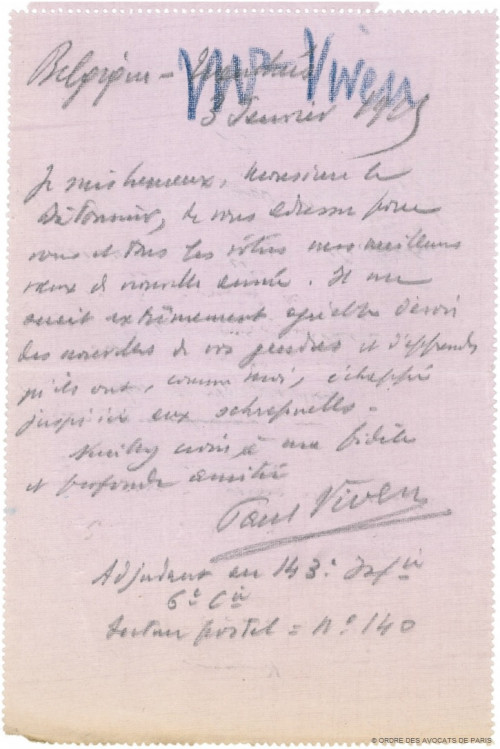 Belgique -
Mr Viven
3 Février 1915
Je suis heureux, Monsieur le
Bâtonnier, de vous adresser pour
vous et tous les vôtres mes meilleurs
vœux de nouvelle année. Il me
serait extrêmement agréable d'avoir
des nouvelles de vos gendres et d'apprendre
qu'ils ont, comme moi, échappé
jusqu'ici aux schrapnells.
Veuillez croire à ma fidèle
et profonde amitié
Paul Viven
Adjudant au 143e Infie
6e Cie
Secteur postal = No 140
© ORDRE DES AVOCATS DE PARIS